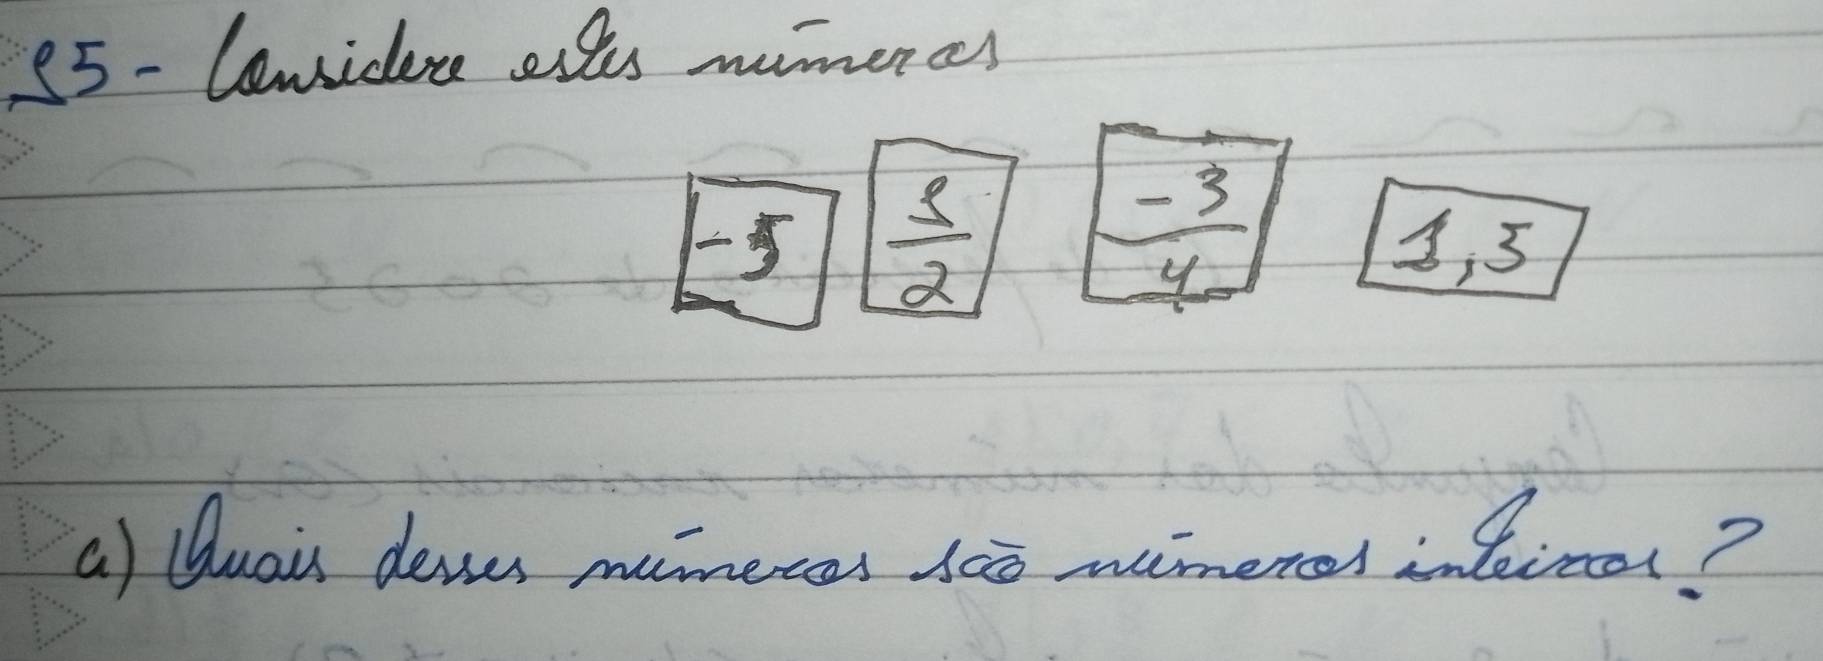 15 - Considere estes números
-5 1/2 -3/4 1,5
a) Quais desses números são números inteiros?